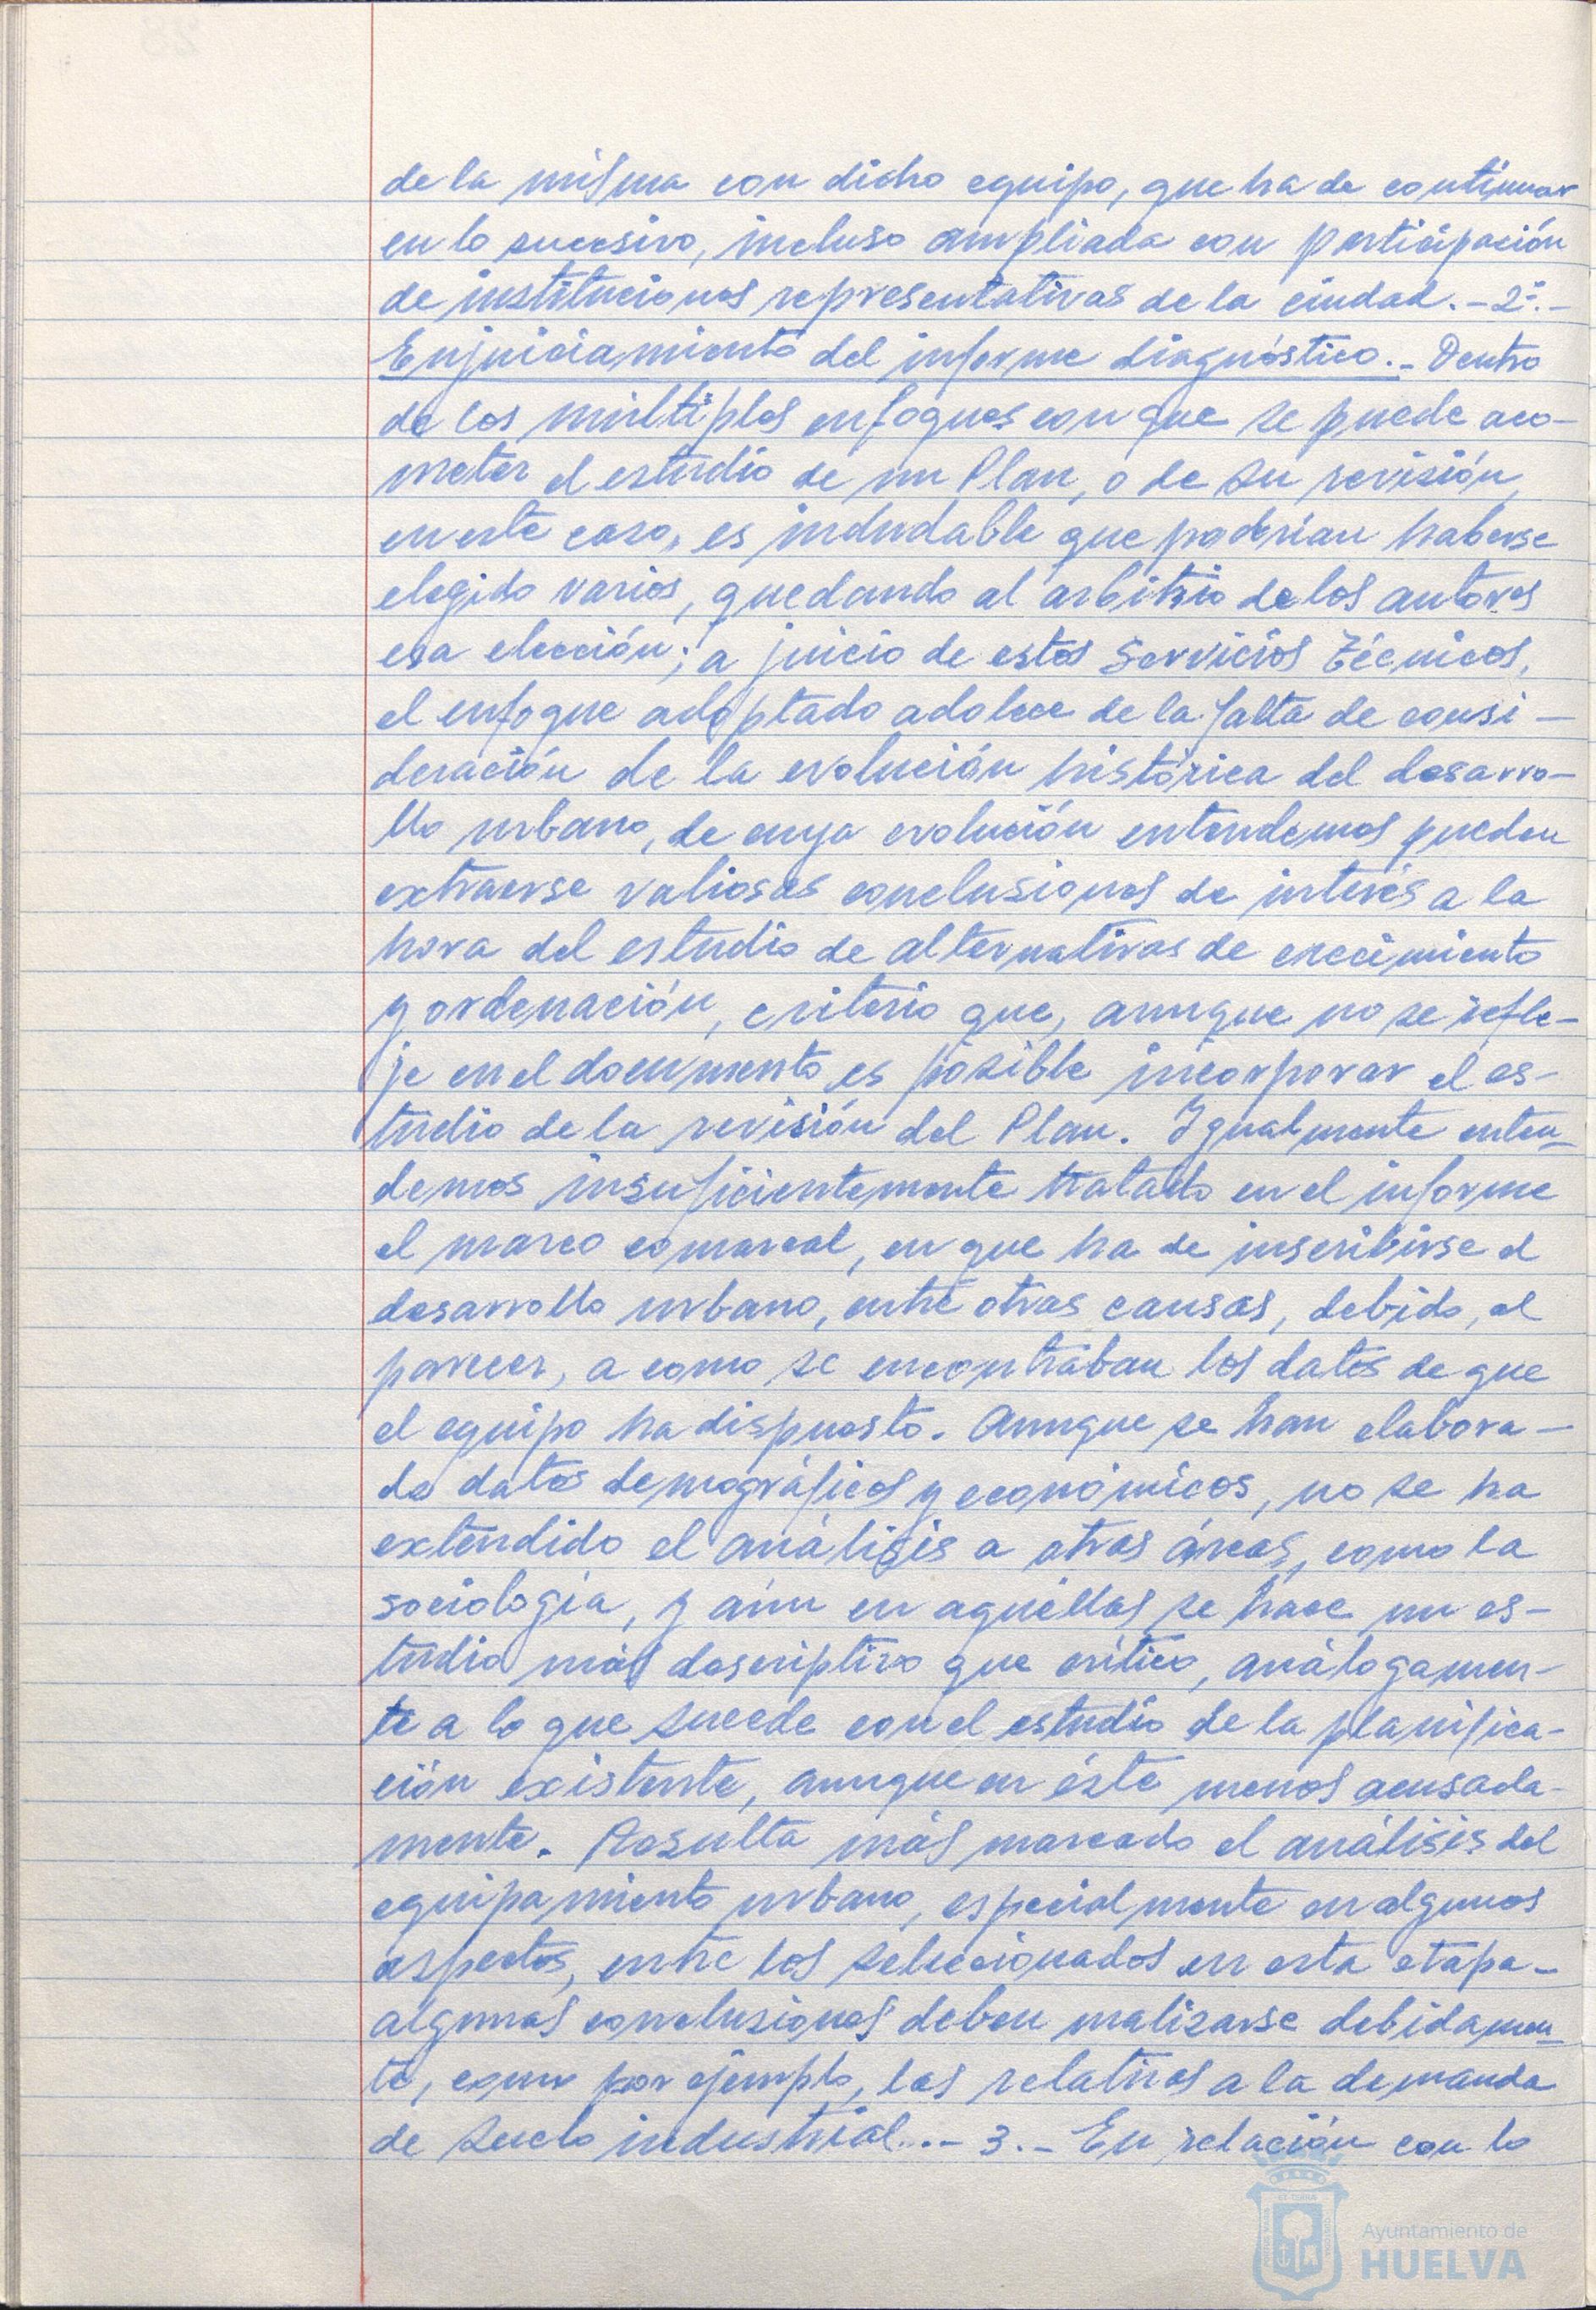 de la misma con dicho equipo, que ha de continuar
en lo sucesivo, incluso ampliada con participación
de instituciones representativas de la ciudad.-2º.-
Enjuiciamiento del informe diagnóstico.- Dentro
de los múltiples enfoques con que se puede aco-
meter el estudio de un Plan, o de su revisión,
en este caso, es indudable que podrían haberse
elegido varios, quedando al arbitrio de los autores
esa elección; a juicio de estos Servicios Técnicos,
el enfoque adoptado adolece de la falta de consi-
deración de la evolución histórica del desarro-
llo urbano, de cuya evolución entendemos pueden
extraerse valiosas conclusiones de interés a la
hora del estudio de alternativas de crecimiento
y ordenación, criterio que, aunque no se refle-
je en el documento es posible incorporar el es-
tudio de la revisión del Plan. Igualmente enten-
demos insuficientemente tratado en el informe
el marco comarcal, en que ha de inscribirse el
desarrollo urbano, entre otras causas, debido, al
parecer, a como se encontraban los datos de que
el equipo ha dispuesto. Aunque se han elabora-
do datos demográficos y económicos, no se ha
extendido el análisis a otras áreas, como la
sociología, y aún en aquéllas se hace un es-
tudio más descriptivo que crítico, análogamen-
te a lo que sucede con el estudio de la planifica-
ción existente, aunque en éste menos acusada-
mente. Resulta más marcado el análisis del
equipamiento urbano, especialmente en algunos
aspectos, entre los seleccionados en esta etapa-
algunas conclusiones deben matizarse debidamen-
te, como por ejemplo, las relativas a la demanda
de suelo industrial..- 3.- En relación con lo
Ayuntamiento de
HUELVA